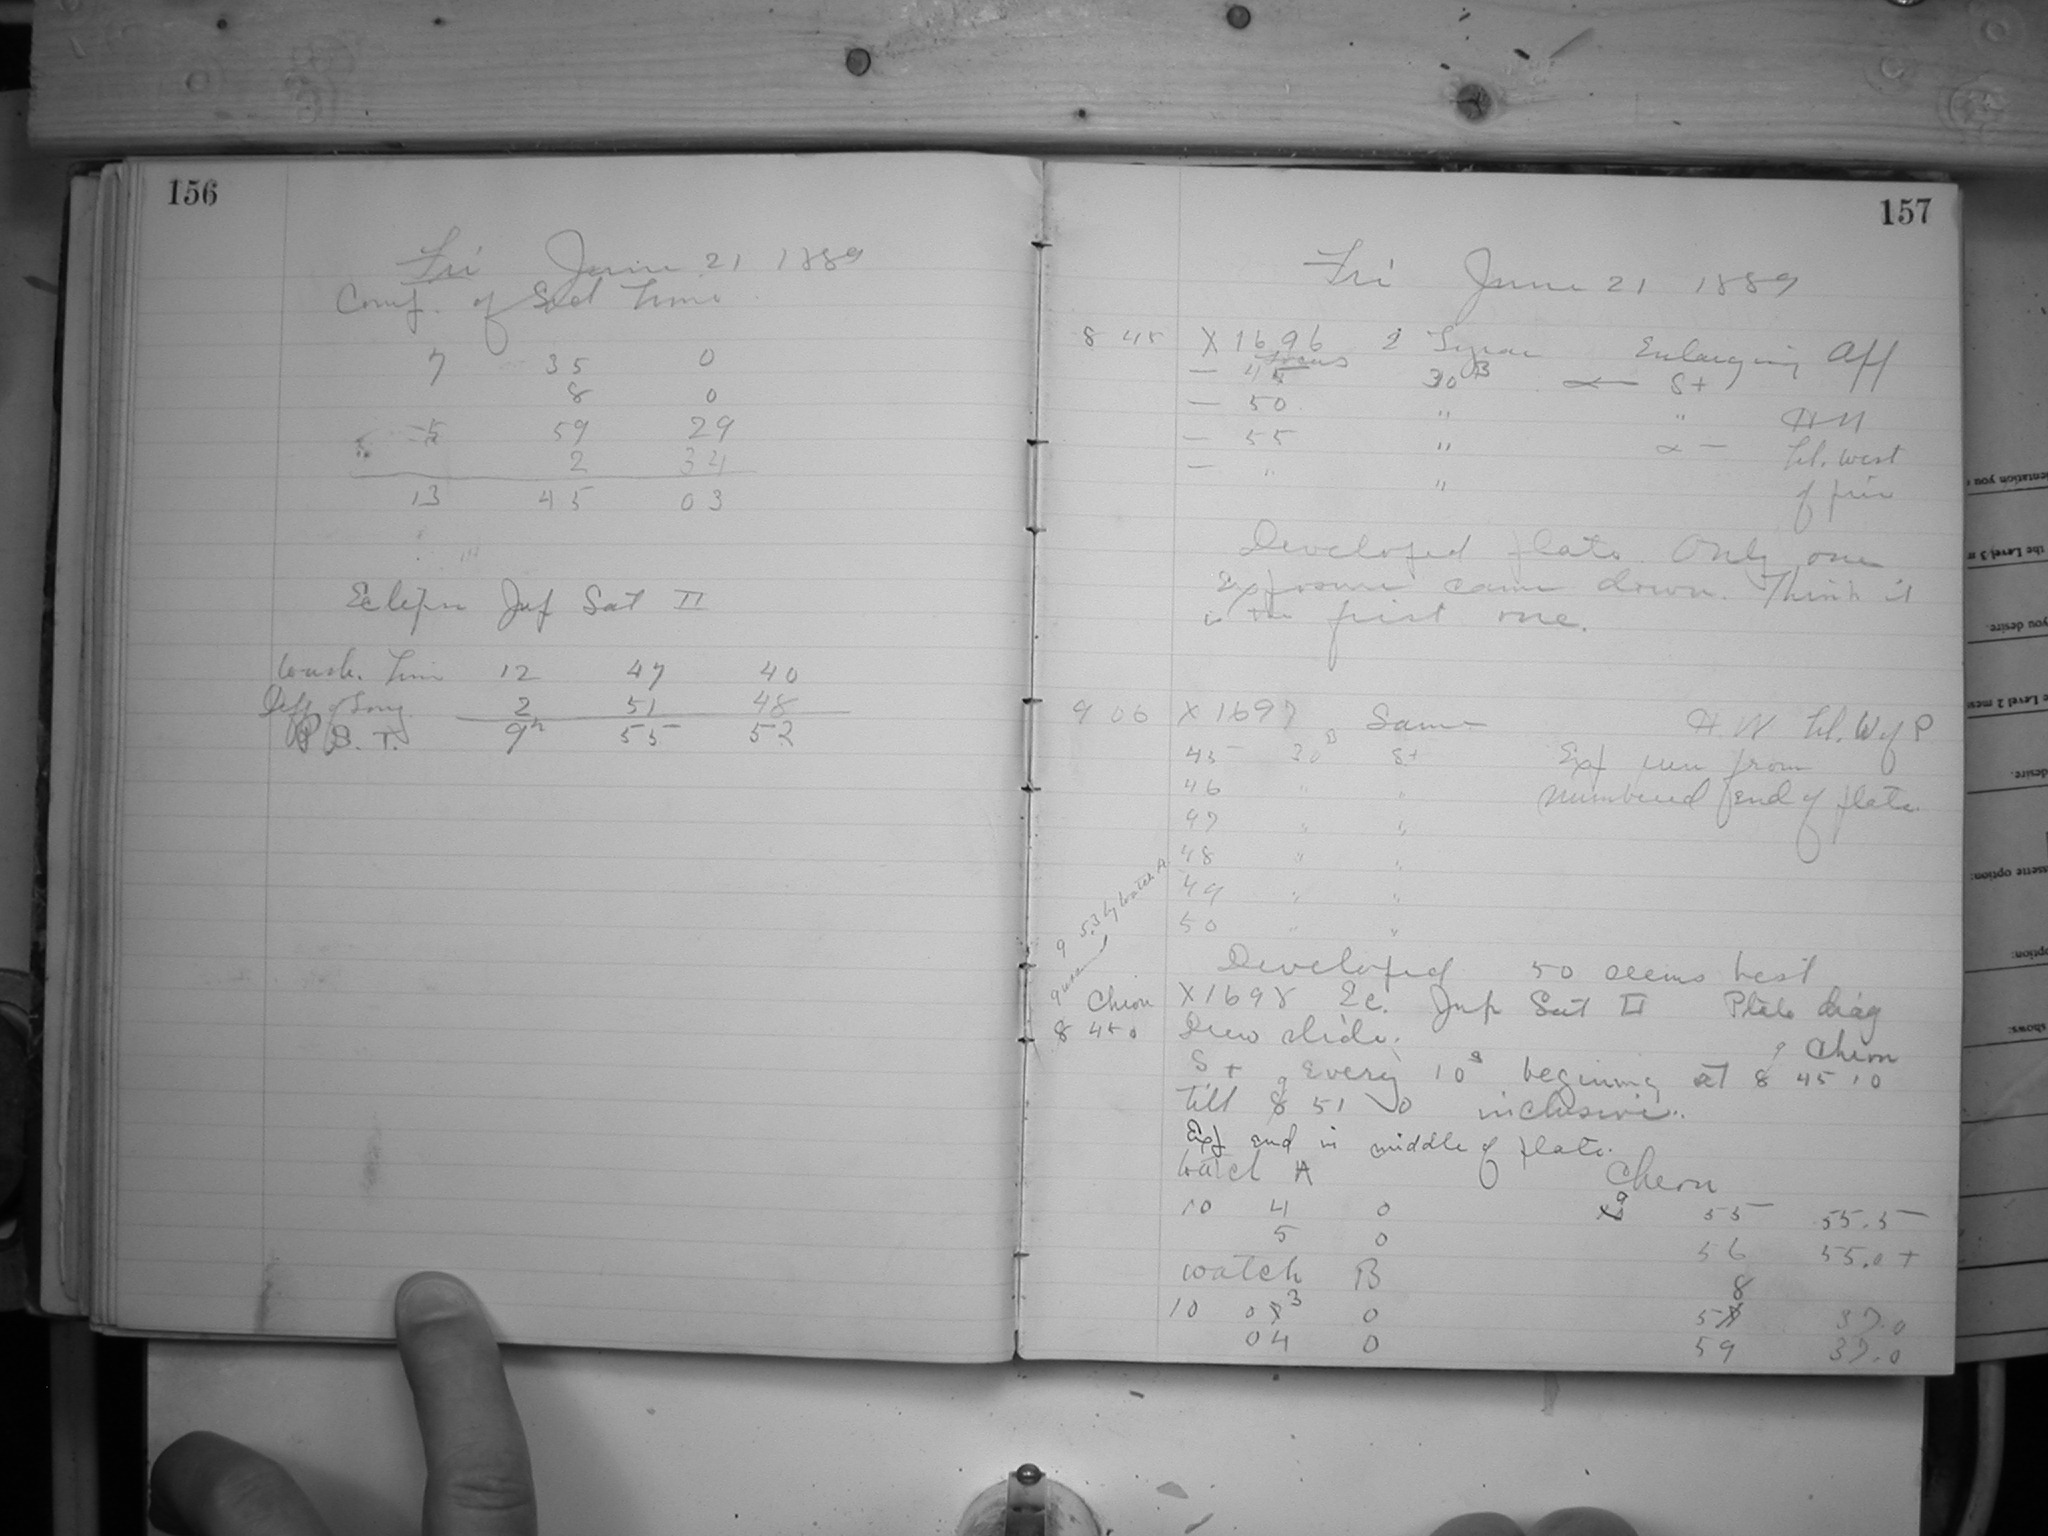 156
Fri June 21 1889
Comp. of Sid Time
7 35 0
8 0
5 59 29
2 34
13 45 03
Eclipse Jup Sat II
Wash. Time 12 47 40
Diff of Long 2 51 48
P. S. T. 9h 55 52
157
Fri June 21 1889
8 45 X 1696 2 Enlarging App
Focus
— 45 30 s S+
— 50 " " HW
— 55 " Tel. west
— " " of pier
Developed plate. Only one
Exposure came down. Think it
is the first one.
9 06 X 1697 Same H.W Tel. W of P
45 30 s S+ Exp run from
46 " " numbered end of plate.
47 " "
48 " "
49 " "
50 " "
9 53 by watch A
Developed 50 seems best
Chron X 1698 Ec. Jup Sat II Plate diag
8 45 0 Drew slide.
9 Chron
S+ Every 10s beginning at 8 45 10
till 8 51 0 inclusive.
Exp end in middle of plate.
Watch A Chron
10 4 0 9 55 55.5
5 0 56 55.0+
Watch B
10 03 0 58 37.0
04 0 59 37.0